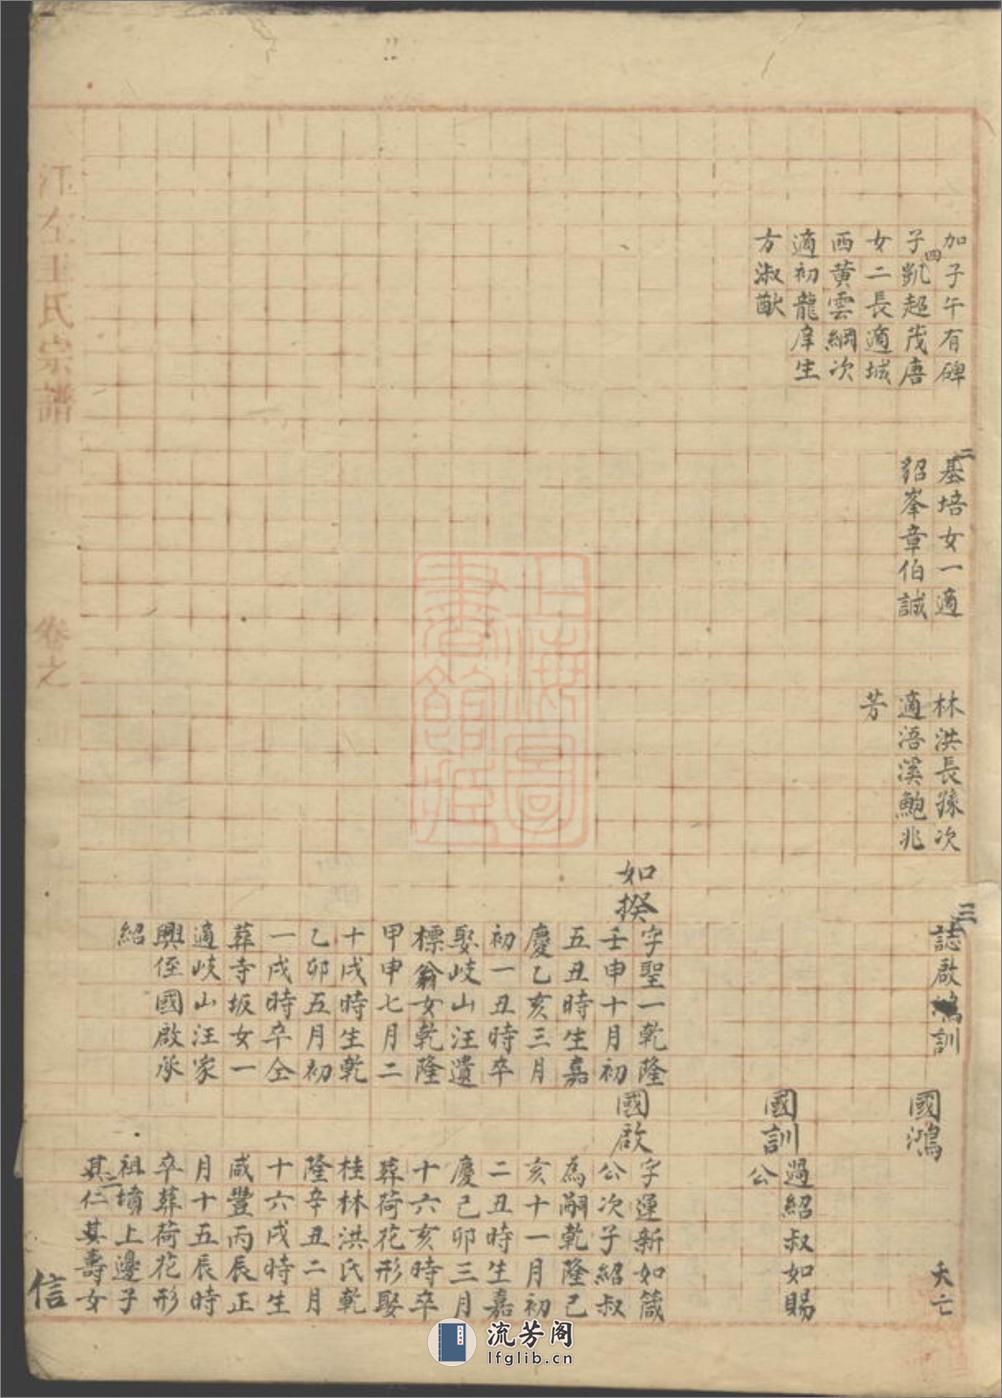 加子午有碑
子四凱起茂唐
女二長適城
西黃雲綱次
適初龍庠生
方淑猷
二
基培女一適
紹峯章伯誠
林洪長豫次
適浯溪鮑兆
芳
三
誌啟鴻訓
國鴻
夭亡
國訓
過紹叔如賜
公
如揆
字聖一乾隆
壬申十月初
五丑時生嘉
慶乙亥三月
初一丑時卒
娶岐山汪遺
標翁女乾隆
甲申七月二
十戌時生乾
乙卯五月初
一戌時卒仝
葬寺坂女一
適岐山汪家
興侄國啟承
紹
國啟
字運新如箴
公次子紹叔
為嗣乾隆己
亥十一月初
二丑時生嘉
慶己卯三月
十六亥時卒
葬荷花形娶
桂林洪氏乾
隆辛丑二月
十六戌時生
咸豐丙辰正
月十五辰時
卒葬荷花形
祖墳上邊子
二其仁其壽女
信
江左王氏宗譜
卷之
上海圖書館藏
流芳阁
lfglib.cn